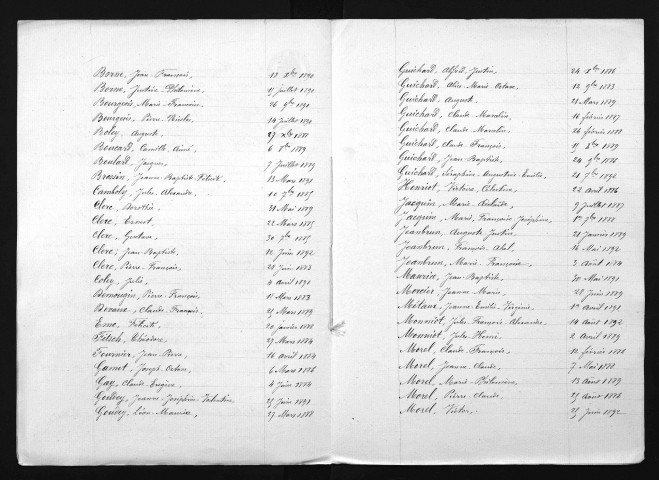 Borne, Jean François, 12 Xbre 1890
Borne, Justine Philomène, 17 juillet 1891
Bourgeois, Marie Françoise 26 9bre 1890
Bourgeois, Pierre Nicolas, 14 juillet 1890
Boley, Auguste, 27 Xbre 1888
Boucard, Camille Aimé, 6 8bre 1889
Boulard, Jacques, 7 juillet 1889
Bressin, Jeanne Baptiste Félicité, 13 Mars 1891
Camboly, Jules Alexandre, 10 7bre 1885
Clerc, Dorothée, 31 Mai 1889
Clerc, Ernest, 22 Mars 1885
Clerc, Gustave, 30 7bre 1885
Clerc, Jean Baptiste, 12 Juin 1892
Clerc, Pierre François, 28 Juin 1883
Coley, Julie, 4 avril 1890
Demougin, Pierre François, 11 Mars 1883
Devaux, Claude François, 25 Mars 1889
Eme, Félicité, 20 janvier 1888
Fétsch, Eléodore, 27 Mars 1884
Fournier, Jean Pierre, 16 avril 1884
Gamet, Joseph Octave, 6 Mars 1886
Gay, Claude Eugène, 4 juin 1884
Goisey, Jeanne Joséphine Valentine, 25 juin 1891
Goisey, Léon Maurice, 27 Mars 1888
Guichard, Alfred Justin, 24 Xbre 1886
Guichard, Alice Marie Octave, 12 9bre 1883
Guichard, Auguste, 21 Mars 1889
Guichard, Claude Marcelin, 16 février 1887
Guichard, Claude Marcelin, 26 février 1888
Guichard, Claude François, 17 8bre 1889
Guichard, Jean Baptiste, 24 9bre 1888
Guichard, Séraphine Augustine Emilie, 21 7bre 1892
Henriot, Victoire Célestine, 22 avril 1886
Jacquin, Marie Adélaïde, 9 juillet 1887
Jacquin, Marie Françoise Joséphine, 1er 7bre 1888
Jeanbrun, Auguste Justin, 28 Janvier 1889
Jeanbrun, François Abel, 16 Mai 1892
Jeanbrun, Marie Françoise, 2 Août 1884
Maurice, Jean Baptiste, 30 Mai 1891
Mercier, Jeanne Marie, 28 Juin 1889
Métaux, Jeanne Emilie Virginie, 1er Avril 1891
Monniot, Jules François Alexandre, 14 Août 1892
Monniot, Jules Honoré, 2 Avril 1889
Morel, Claude François, 12 février 1888
Morel, Jeanne Claude, 7 Mai 1888
Morel, Marie Philomène, 13 Août 1889
Morel, Pierre Claude, 25 Août 1888
Morel, Victor, 25 Juin 1892